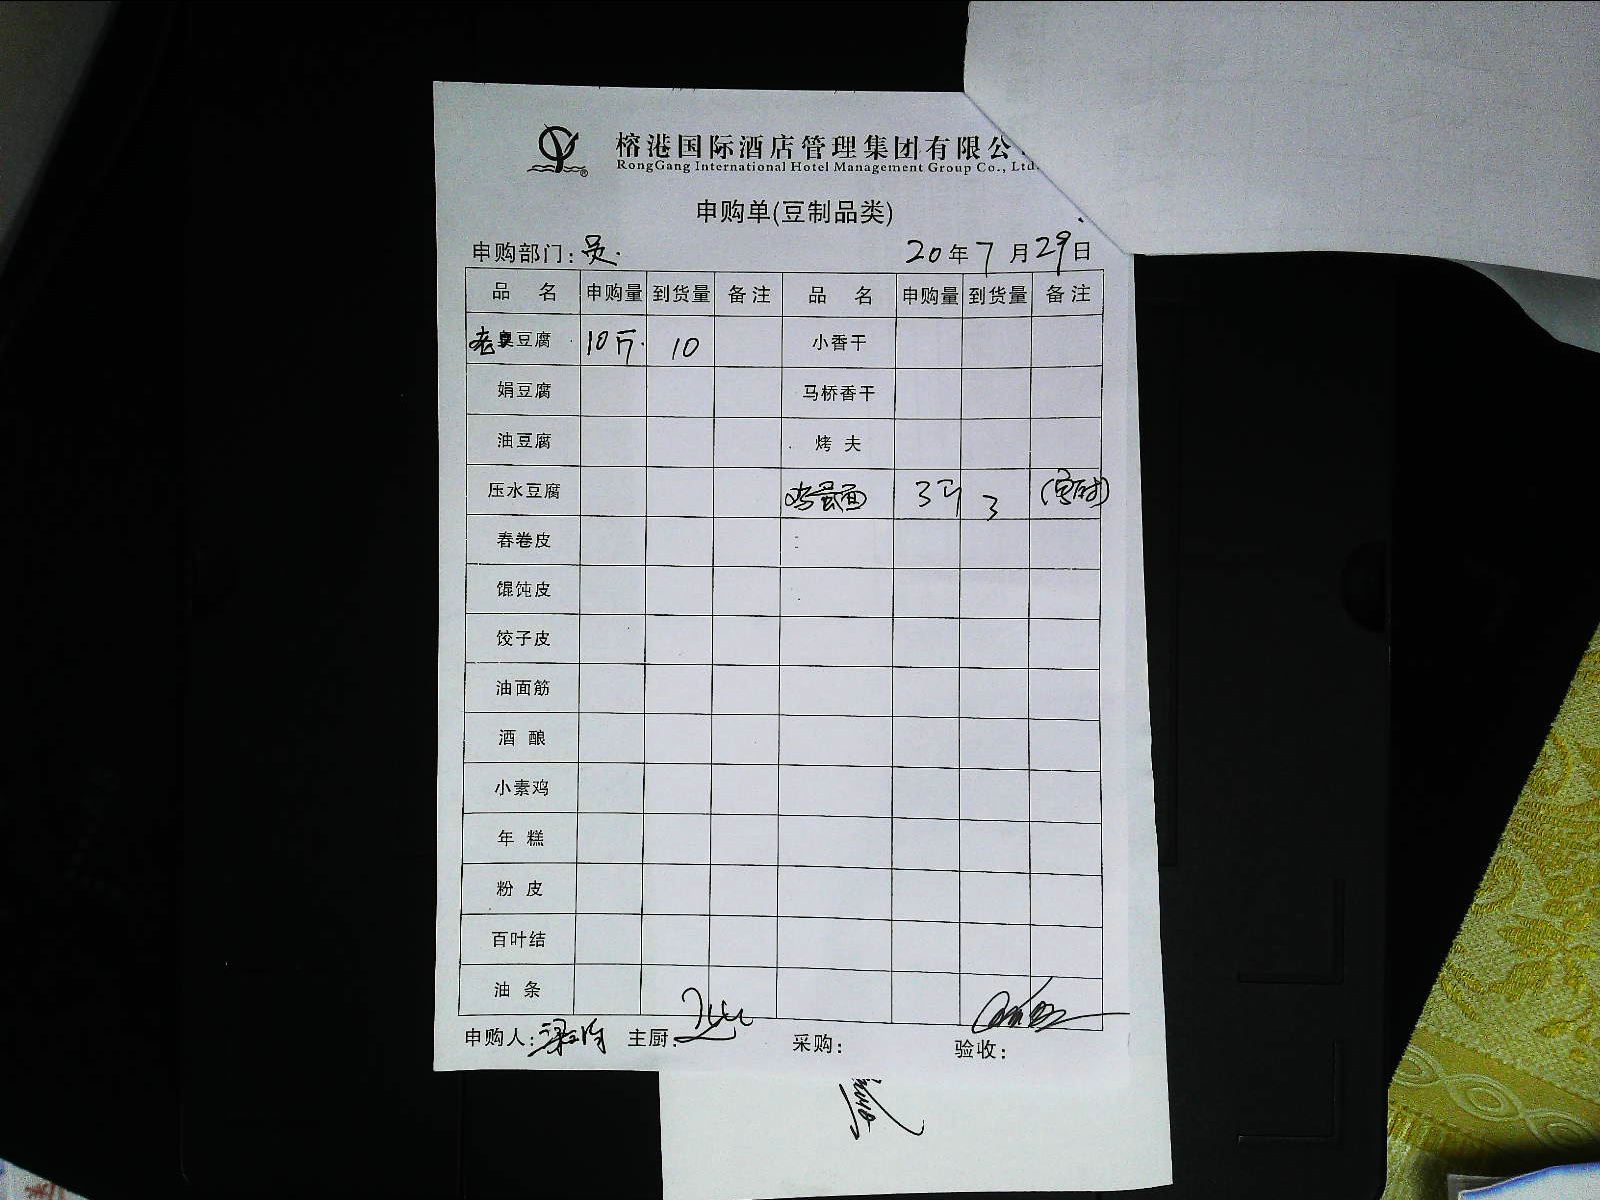 榕港国际酒店管理集团有限公
RongGang International Hotel Management Group Co., Ltd.
申购单(豆制品类)
申购部门: 员. 20年7月29日
品 名 申购量 到货量 备注 品 名 申购量 到货量 备注
老臭豆腐 10斤. 10 小香干
娟豆腐 马桥香干
油豆腐 烤 夫
压水豆腐 鸡蛋面 3斤 3
春卷皮
馄饨皮
饺子皮
油面筋
酒 酿
小素鸡
年 糕
粉 皮
百叶结
油 条
申购人: 主厨: 采购: 验收: